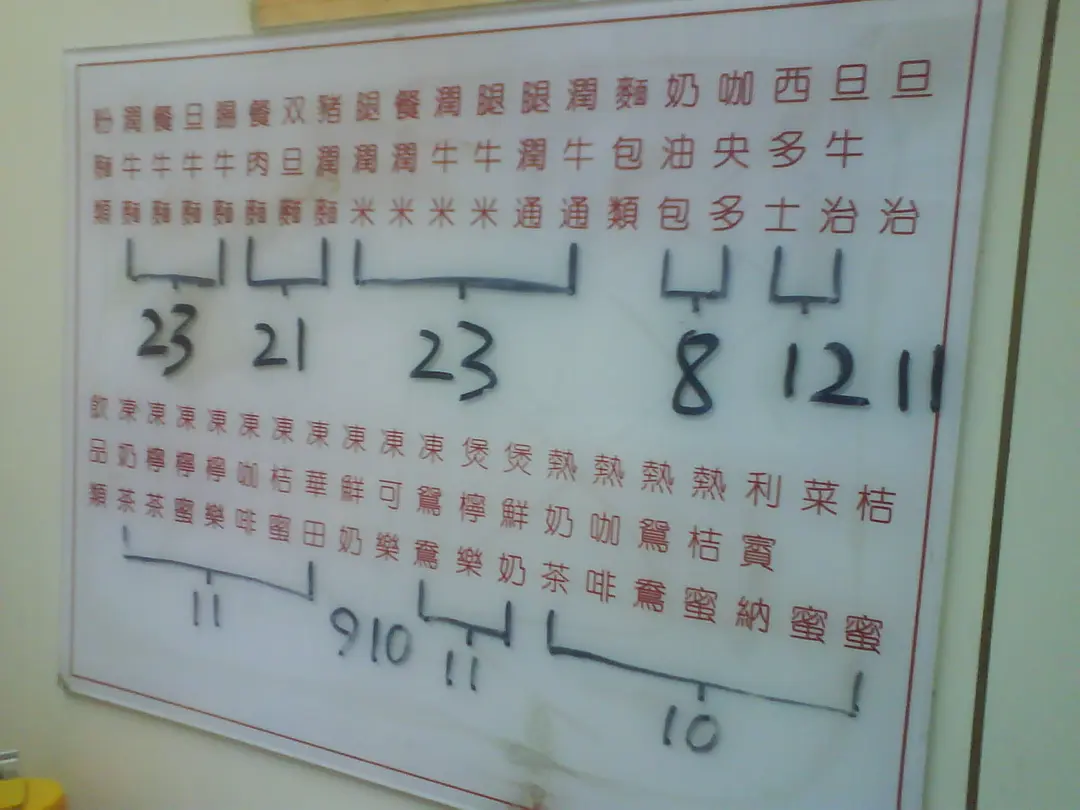 粉麵類
潤牛麵
餐牛麵
旦牛麵
腸牛麵
餐肉麵
双旦麵
豬潤麵
腿潤米
餐潤米
潤牛米
腿牛米
腿潤通
潤牛通
麵包類
奶油包
咖央多
西多士
旦牛治
旦治
23 21 23 8 12 11
飲品類
凍奶茶
凍檸茶
凍檸蜜
凍檸樂
凍咖啡
凍桔蜜
凍華田
凍鮮奶
凍可樂
凍鴛鴦
煲檸樂
煲鮮奶
熱奶茶
熱咖啡
熱鴛鴦
熱桔蜜
利賓納
菜蜜
桔蜜
11 9 10 11 10